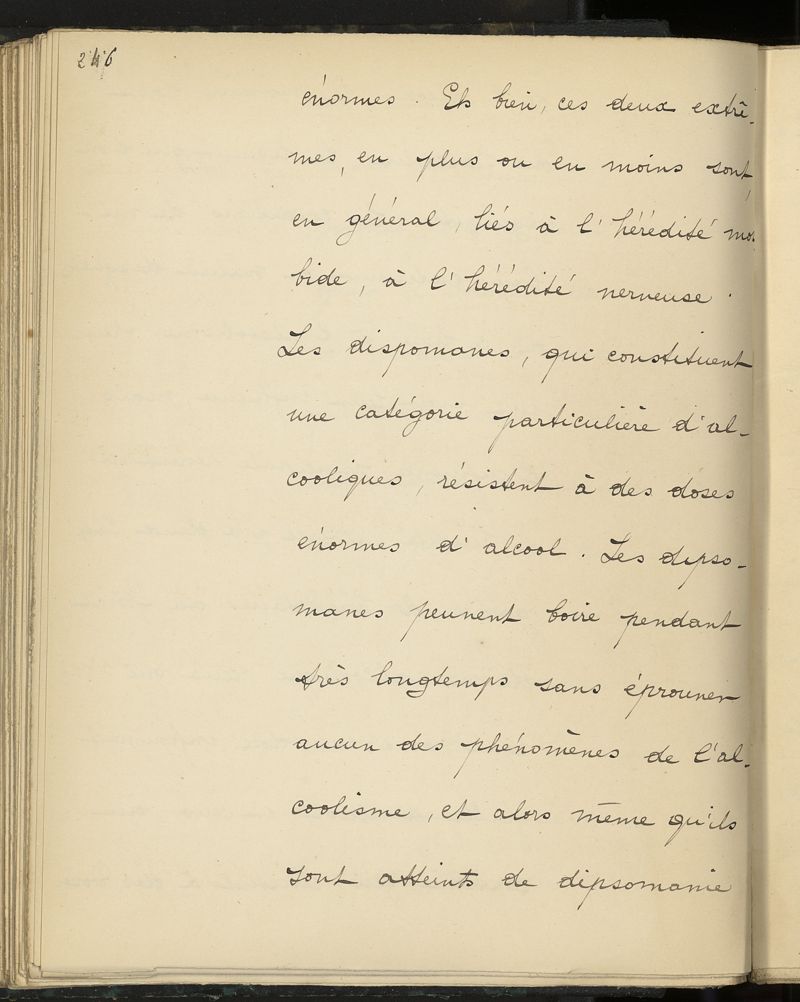 246
énormes. Eh bien, ces deux extrê-
mes, en plus ou en moins sont,
en général, liés à l'hérédité mor-
bide, à l'hérédité nerveuse.
Les dispomanes, qui constituent
une catégorie particulière d'al-
cooliques, résistent à des doses
énormes d'alcool. Les dipso-
manes peuvent boire pendant
très longtemps sans éprouver
aucun des phénomènes de l'al-
coolisme, et alors même qu'ils
sont atteints de dipsomanie